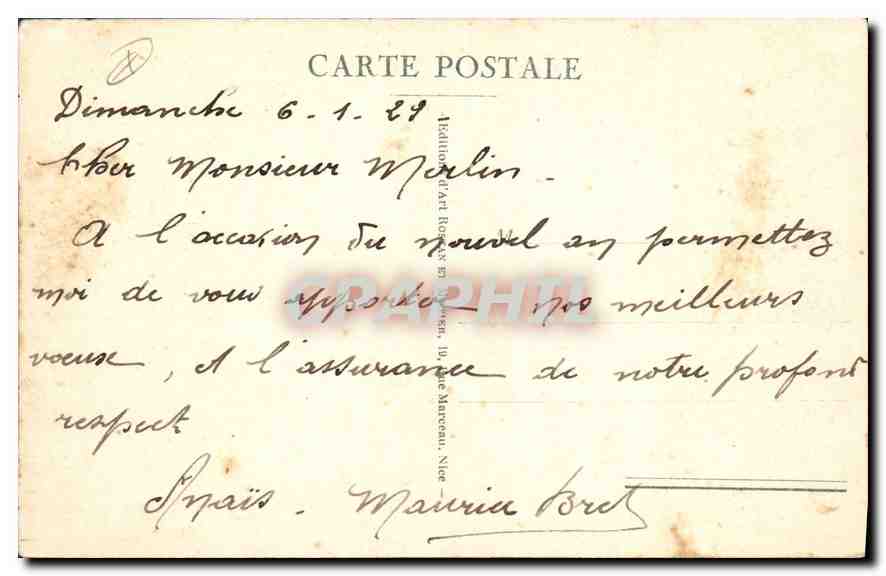 CARTE POSTALE
Dimanche 6-1-29
Cher Monsieur Morlin -
A l'occasion du nouvel an permettez
moi de vous apporter nos meilleurs
voeux, et l'assurance de notre profond
respect
Anaïs - Maurice Bret
Editions d'Art ROSTAN ET MUNIER, 19, Rue Marceau, Nice
CPAPHIL